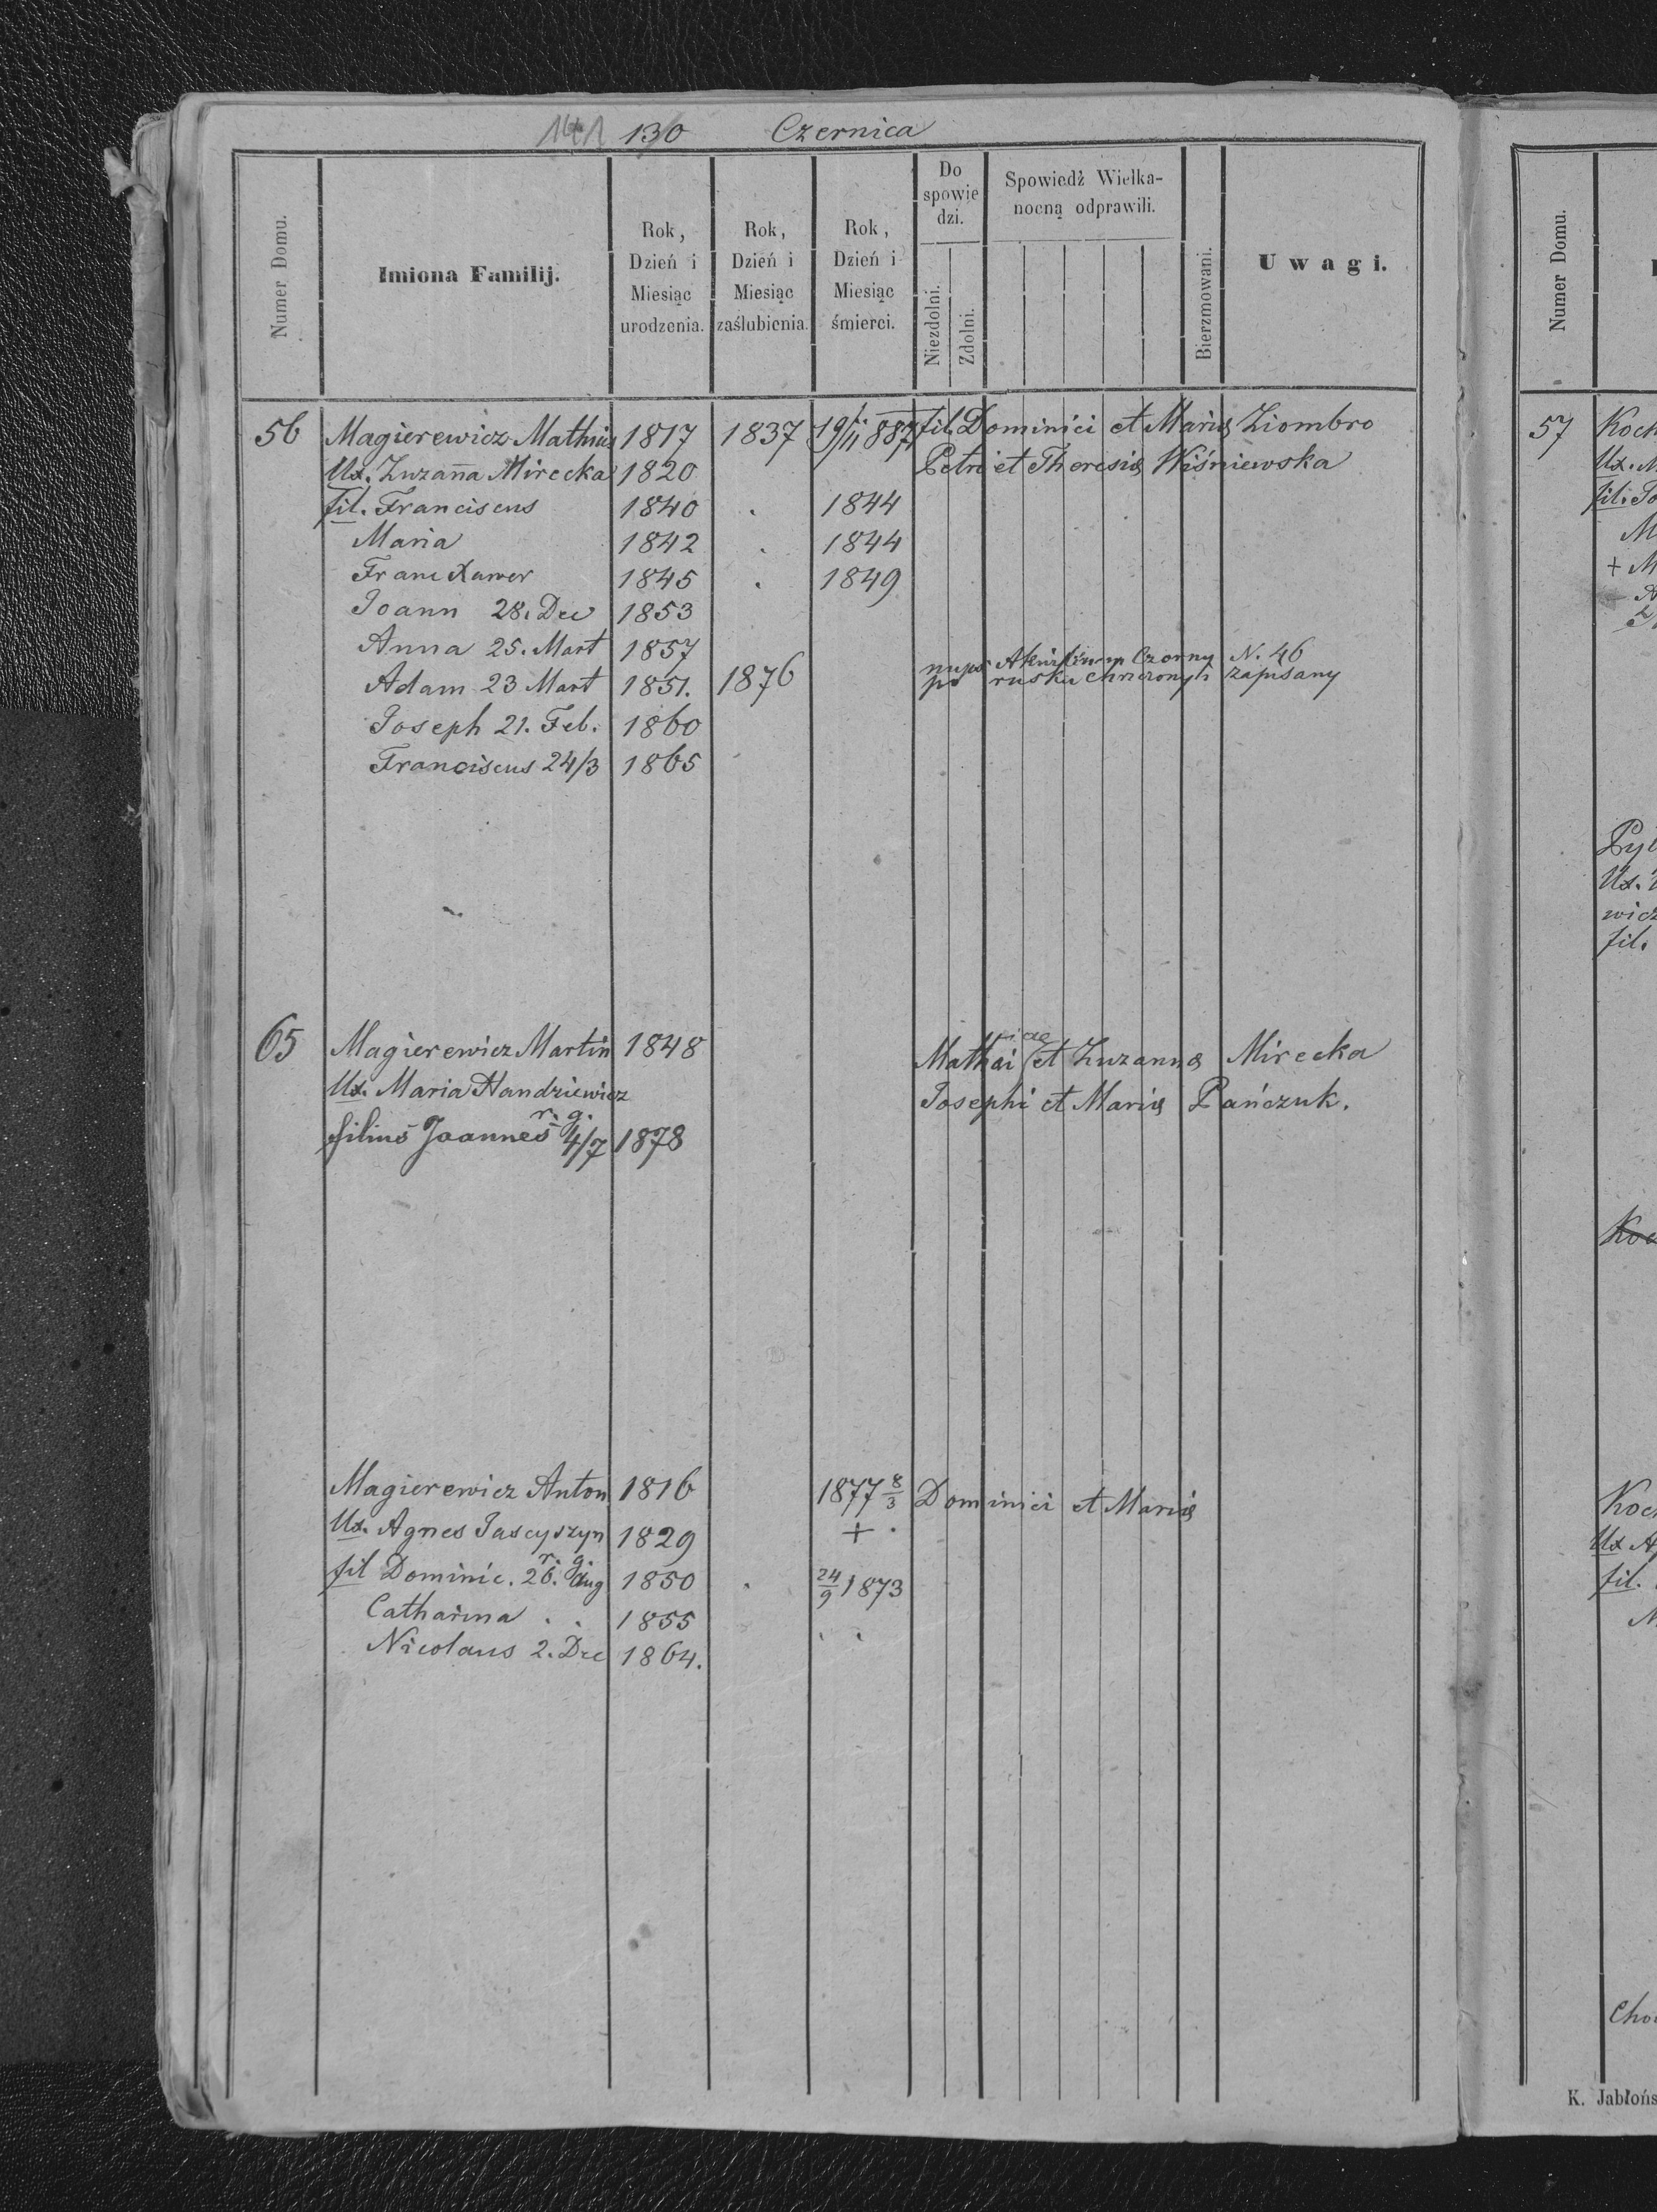 141 130 Czernica
Numer Domu.
Imiona Familij.
Rok, Dzień i Miesiąc urodzenia.
Rok, Dzień i Miesiąc zaślubienia.
Rok, Dzień i Miesiąc śmierci.
Do spowie dzi.
Niezdolni.
Zdolni.
Spowiedź Wielka-
nocną odprawili.
Bierzmowani.
Uwagi.
56 Magierewicz Mathias 1817 1837 19/II 887 fil. Dominici et Mariæ Ziombro
Ux. Zuzanna Mirecka 1820 Petri et Theresiæ Wiśniewska
fil. Franciscus 1840 . 1844
Maria 1842 . 1844
Franc Xawer 1845 . 1849
Joann 28. Dec 1853
Anna 25. Mart 1857
Adam 23 Mart 1851. 1876 Czorny N. 46
po rusku zapisany
Joseph 21. Feb. 1860
Franciscus 24/3 1865
65 Magierewicz Martin 1848 Mathai iae et Zuzannæ Mirecka
Ux. Maria Handziewicz Josephi et Mariæ Pańczuk.
r. g.
filius Joannes 4/7 1878
Magierewicz Anton 1816 1877 8/3 Dominici et Mariæ
Ux. Agnes Jascyszyn 1829 + .
r. g.
fil Dominic. 26. Aug 1850 . 24/9 1873
Catharina . . 1855
Nicolaus 2. Dec 1864.
Numer Domu.
57 Koch
Ux. M
fil. Jo
M
+ M
Ux.
wicz
fil.
Koc
Ux A
fil.
K. Jabłońs